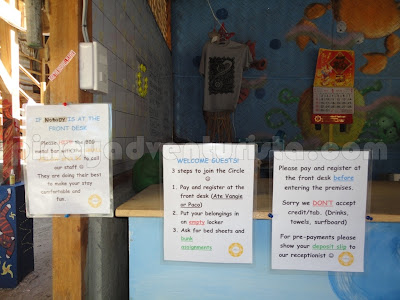 IF NOBODY IS AT THE
FRONT DESK
Please the BIG
to call
our staff ☺
They are doing their best
to make your stay
comfortable and
fun.
WELCOME GUESTS!
3 steps to join the Circle
☺
1. Pay and register at the
front desk (Ate Vangie
or Paco)
2. Put your belongings in
an empty locker
3. Ask for bed sheets and
bunk
assignments
Please pay and register at
the front desk before
entering the premises.
Sorry we DON'T accept
credit/tab. (Drinks,
towels, surfboard)
For pre-payments please
show your deposit slip to
our receptionist ☺